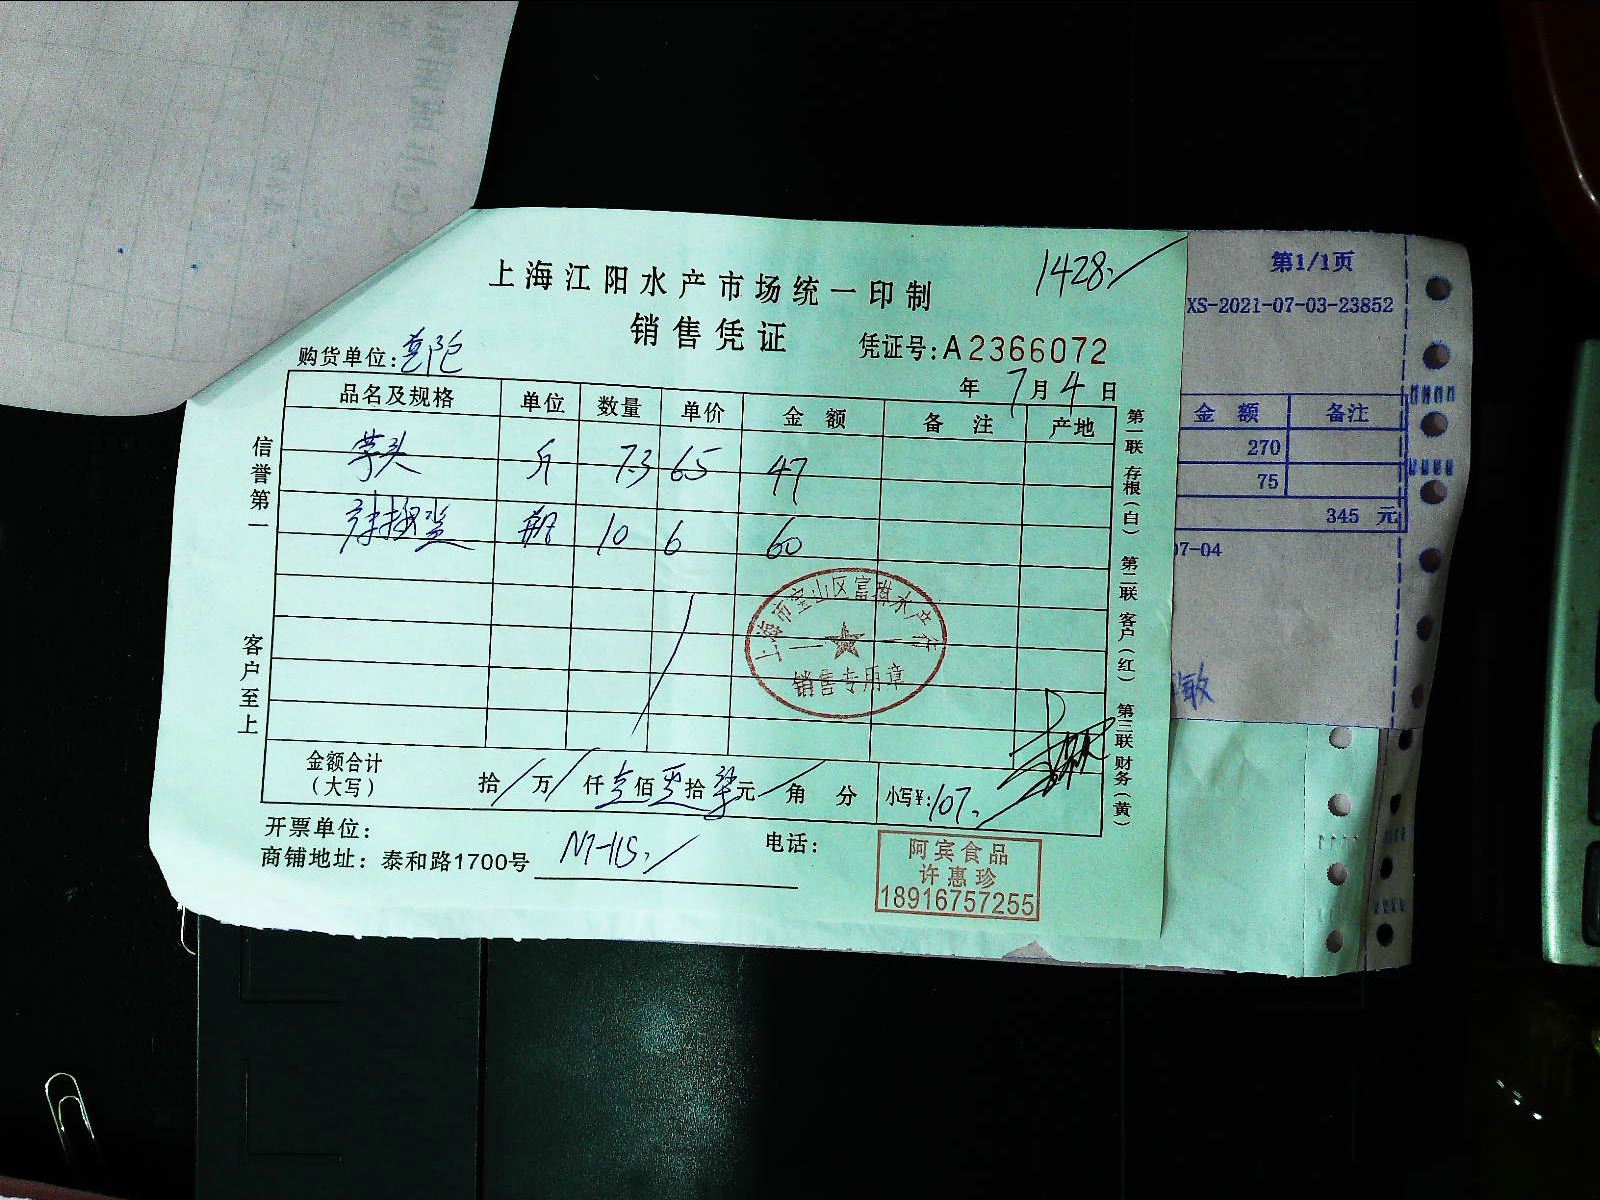 1428.
上海江阳水产市场统一印制
销售凭证
凭证号:A2366072
购货单位:
年 7月 4日
品名及规格 单位 数量 单价 金额 备注 产地
芋头 斤 7.3 65 47
瓶 10 6 60
信誉第一
客户至上
第一联 存根(白) 第二联 客户(红) 第三联 财务(黄)
上海市宝山区富琪水产行
销售专用章
金额合计(大写) 拾 万 仟壹佰零拾柒元 角 分 小写¥:107.
开票单位:
电话:
商铺地址:泰和路1700号
阿宾食品
许惠珍
18916757255
第1/1页
XS-2021-07-03-23852
金额 备注
270
75
345 元
07-04
敏